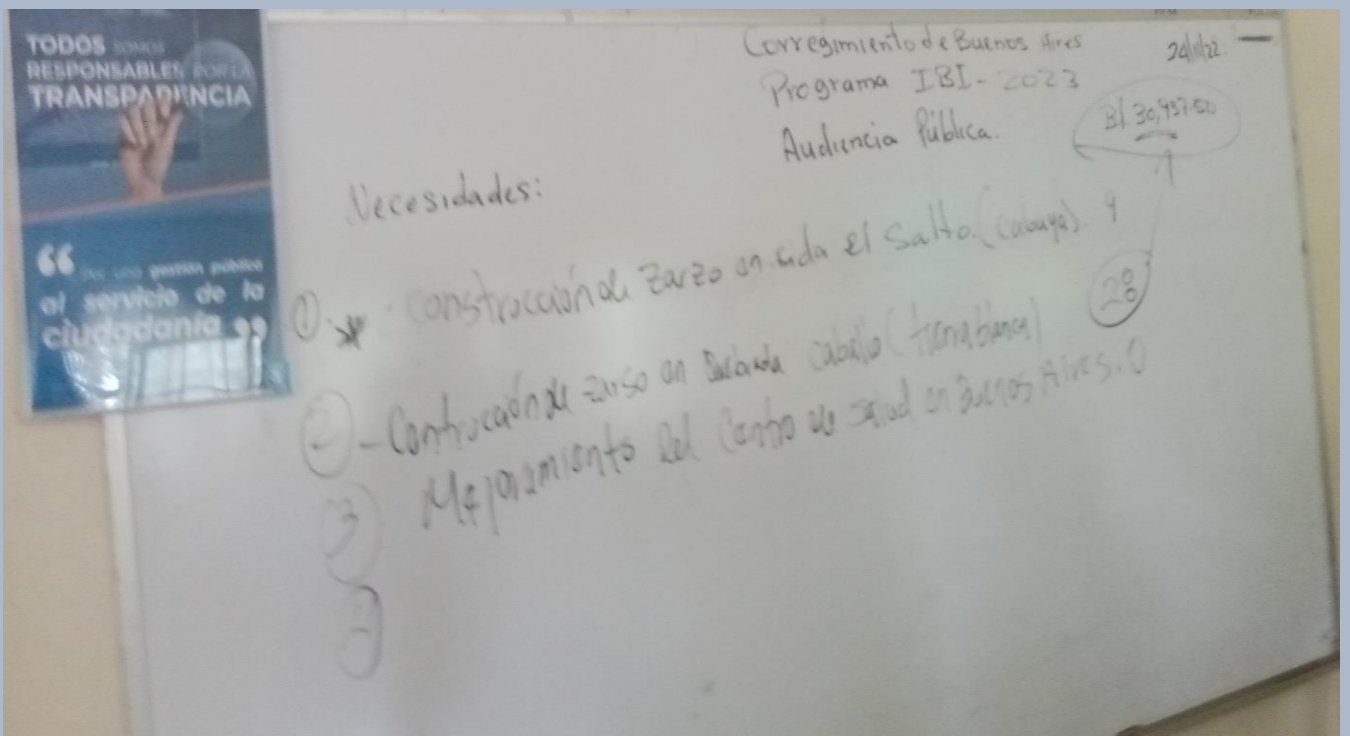 TODOS SOMOS
RESPONSABLES POR LA
TRANSPARENCIA
“ Por una gestión pública
al servicio de la
ciudadanía ”
Corregimiento de Buenos Aires
24/11/22.
Programa IBI - 2023
B/. 30,937.50
Audiencia Pública.
Necesidades:
① - construcción de zarzo en el Salto. (cabuya). 9
28
② - Contrucción de zarso en caballo (tierra blanca)
③ Mejoramiento del Centro de Salud en Buenos Aires. 0